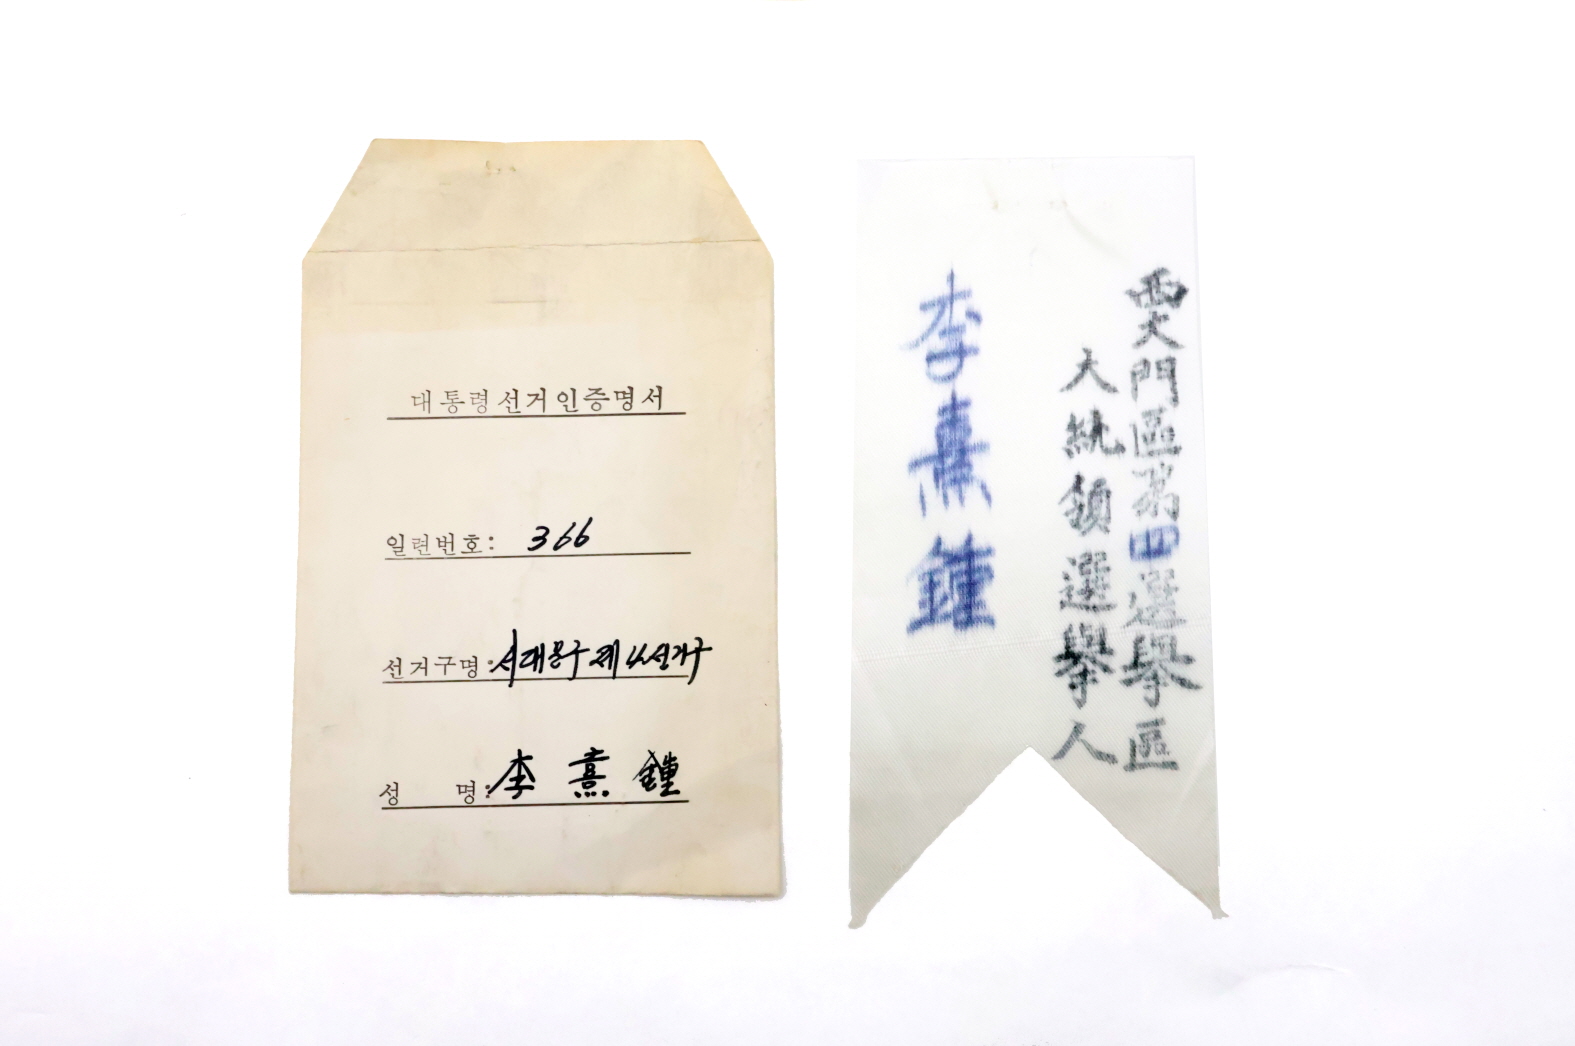 대통령선거인증명서
일련번호: 366
선거구명: 서대문구 제4선거구
성 명: 李熹鍾
西大門區第四選擧區
大統領選擧人
李熹鍾